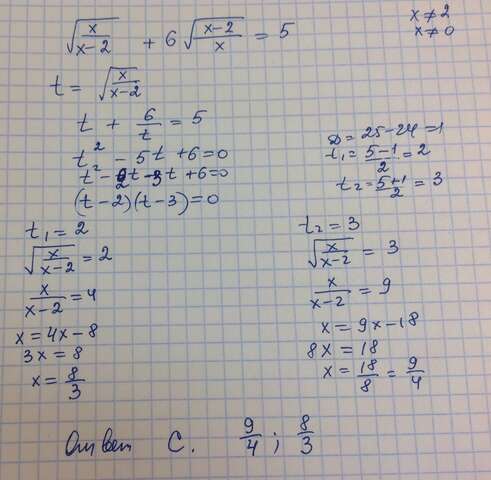 √(x/(x-2)) + 6√((x-2)/x) = 5
x ≠ 2
x ≠ 0
t = √(x/(x-2))
t + 6/t = 5
t² - 5t + 6 = 0
t² - 2t - 3t + 6 = 0
(t - 2)(t - 3) = 0
D = 25 - 24 = 1
t₁ = (5-1)/2 = 2
t₂ = (5+1)/2 = 3
t₁ = 2
√(x/(x-2)) = 2
x/(x-2) = 4
x = 4x - 8
3x = 8
x = 8/3
t₂ = 3
√(x/(x-2)) = 3
x/(x-2) = 9
x = 9x - 18
8x = 18
x = 18/8 = 9/4
Ответ C. 9/4 ; 8/3